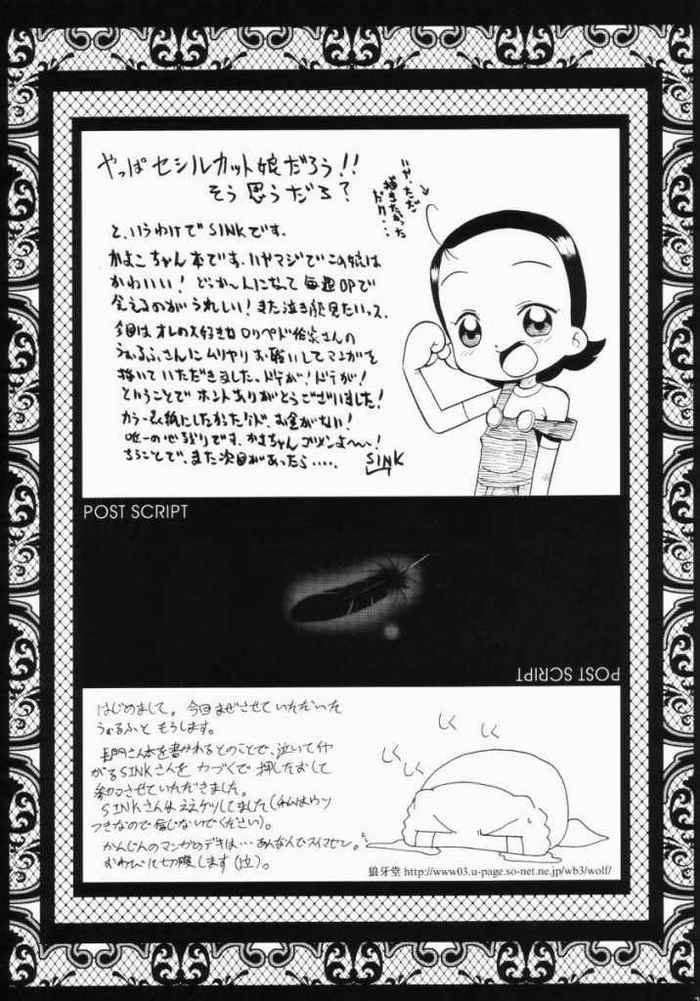 やっぱ セシルカット娘だろう!!
そう思うだろ?
と、いうわけで SINKです。
かよこちゃん本です。ハヤマジでこの娘は
かわいい! どらか〜んになって 毎週OPで
会えるのがうれしい! また泣き顔見たいッス。
今回は オレの大好きな ロリペド作家さんの
うぉるふさんにムリヤリお願いしてマンガを
描いていただきました。ドテが! ドテが!
ということで ホントありがとうございました!
カラー表紙にしたかったケド、お金がない!
唯一の心残りです。かよちゃんゴメンよ〜〜!
ちうことで、また次回があったら・・・・
SINK
描きたかった
POST SCRIPT
POST SCRIPT
はじめまして。今回まぜさせていただいた
うぉるふと もうします。
長門さん本を書かれるとのことで、泣いてイヤ
がるSINKさんを 力づくで 押したおして
参加させていただきました。
SINKさんは ええケツしてました(わんはウソ
つきなので信じないでください)。
かんじんのマンガのデキは…あんなんでスイマセン。
おわびに切腹します(泣)。
しく
しく
しく
しく
狼牙堂 http://www03.u-page.so-net.ne.jp/wb3/wolf/